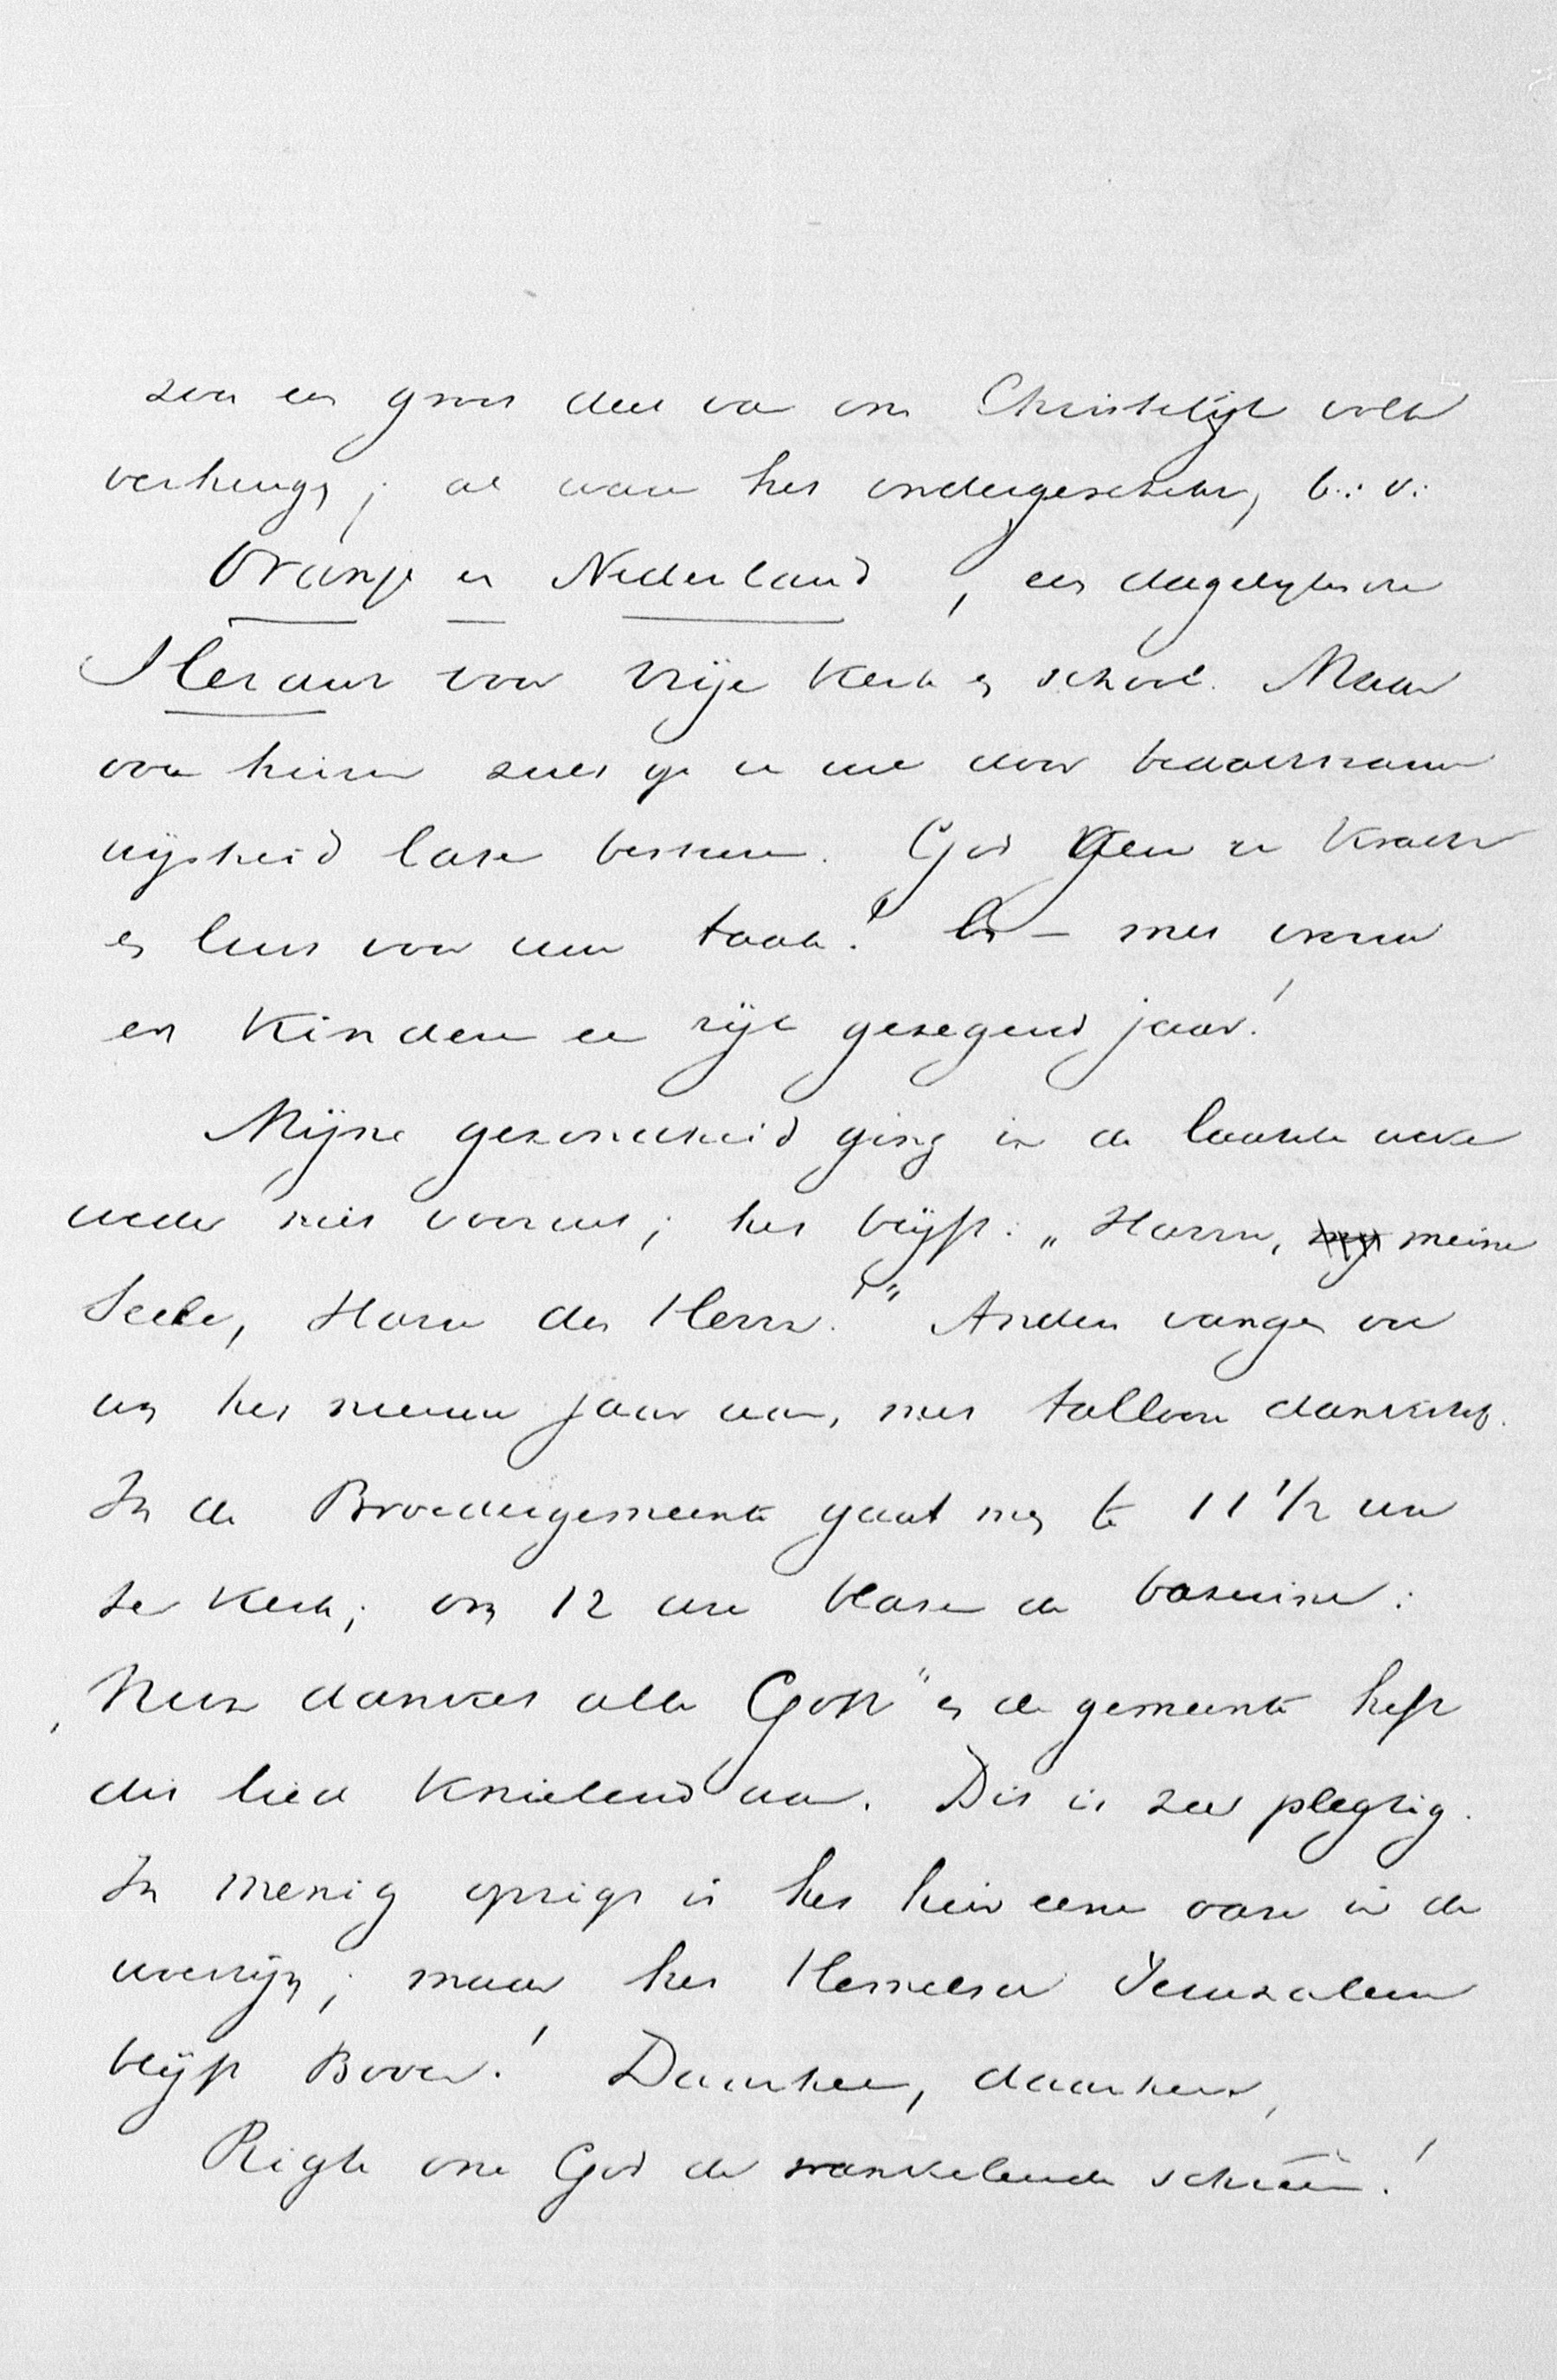 zou een groot deel van ons Christelijk volk
verheugen; al ware het ondergeschikt, b.: v:
Oranje en Nederland, een dagelijksche
Heraut voor vrije Kerk en school. Maar
over hierin zult ge u wel door bedachtzame
wijsheid laten besturen. God geve u Kracht
en lust voor uw taak! En – met vrouw
en Kinderen een rijk gezegend jaar!
Mijne gezondheid ging in de laatste weken
weder niet vooruit; het blijft: „Harre, meine
Seele, Harre des Herrn!" Anders vangen we
wij het nieuwe jaar aan, met tallooze dankstof.
In de Broedergemeente gaat men te 11 1/2 ure
ter Kerk; om 12 ure blazen de bazuinen:
„Nun danket alle Gott" en de gemeente heft
dit lied Knielend aan. Dit is zeer plegtig.
In menig opzigt is het hier eene oase in de
woestijn; maar het Hemelsch Jeruzalem
blijft Boven! Daarheen, daarheen,
Rigte onze God de wankelende schreên!